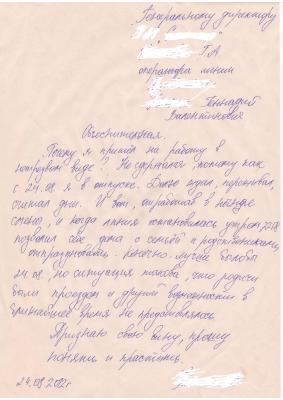 Генеральному директору
Г.А
оператора линии
Геннадий
Валентинович
Объяснительная.
Почему я пришёл на работу в
нетрезвом виде? Не сдержался, потому как
с 24.08 я в отпуске. Долго ждал, переживал,
считал дни. И вот, отработав в
смену, и когда линия остановилась утром
позволил себе дома с семьёй и родственниками,
отпраздновать. Конечно лучше было бы
24.08, но ситуация такова, что родичи
были проездом и другой возможности в
ближайшее время не предоставлялось
Признаю свою вину, прошу
понять и простить.
24.08.2012г.